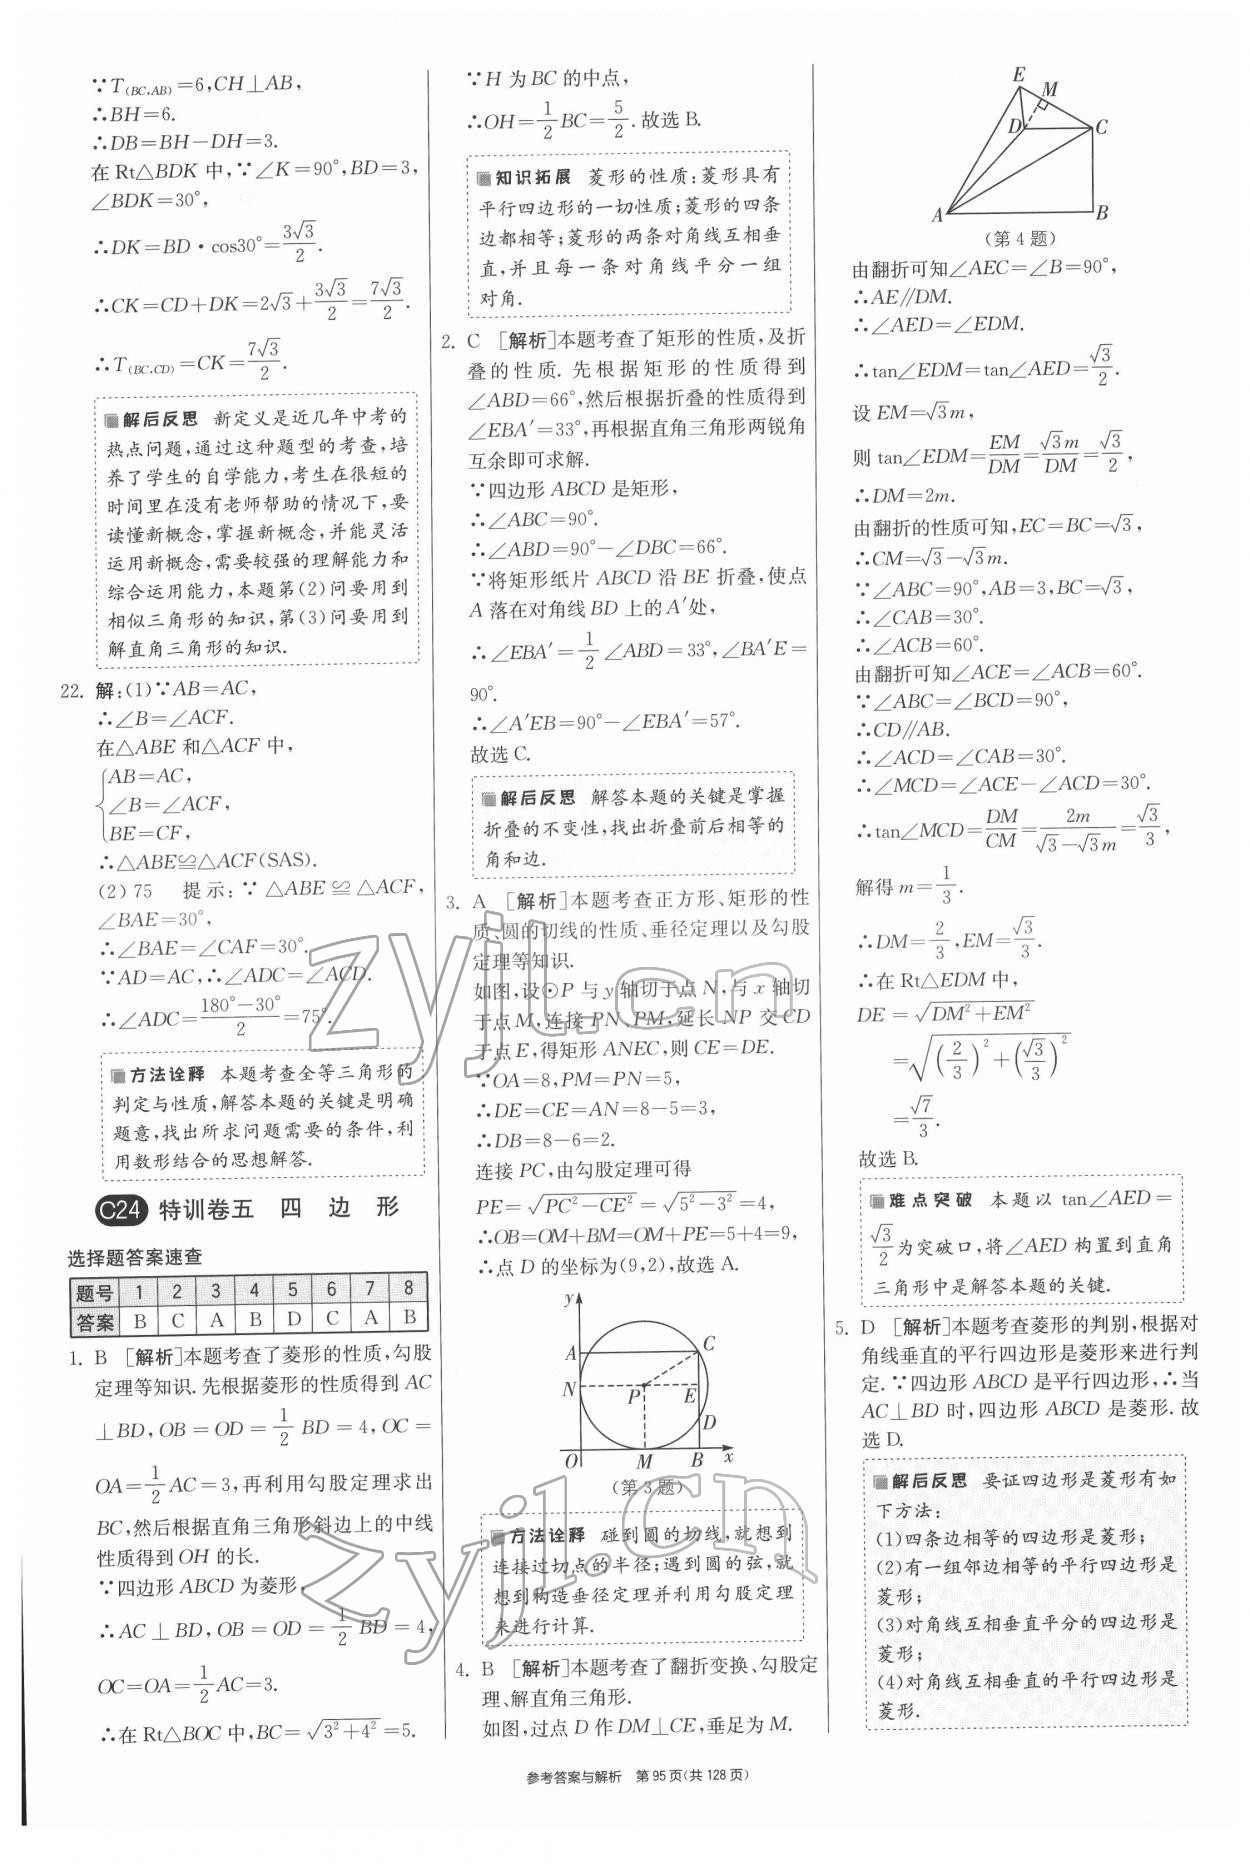 ∵T(BC,AB)=6,CH⊥AB,
∴BH=6.
∴DB=BH-DH=3.
在 Rt△BDK 中,∵∠K=90°,BD=3,
∠BDK=30°,
∴DK=BD·cos30°=3√3/2.
∴CK=CD+DK=2√3+3√3/2=7√3/2.
∴T(BC,CD)=CK=7√3/2.
解后反思 新定义是近几年中考的
热点问题,通过这种题型的考查,培
养了学生的自学能力,考生在很短的
时间里在没有老师帮助的情况下,要
读懂新概念,掌握新概念,并能灵活
运用新概念,需要较强的理解能力和
综合运用能力,本题第(2)问要用到
相似三角形的知识,第(3)问要用到
解直角三角形的知识.
22. 解:(1)∵AB=AC,
∴∠B=∠ACF.
在△ABE 和△ACF 中,
{AB=AC,
∠B=∠ACF,
BE=CF,
∴△ABE≌△ACF(SAS).
(2)75 提示:∵△ABE≌△ACF,
∠BAE=30°,
∴∠BAE=∠CAF=30°.
∵AD=AC,∴∠ADC=∠ACD.
∴∠ADC=180°-30°/2=75°.
方法诠释 本题考查全等三角形的
判定与性质,解答本题的关键是明确
题意,找出所求问题需要的条件,利
用数形结合的思想解答.
C24 特训卷五 四 边 形
选择题答案速查
题号 1 2 3 4 5 6 7 8
答案 B C A B D C A B
1. B [解析]本题考查了菱形的性质,勾股
定理等知识. 先根据菱形的性质得到 AC
⊥BD,OB=OD=1/2BD=4,OC=
OA=1/2AC=3,再利用勾股定理求出
BC,然后根据直角三角形斜边上的中线
性质得到 OH 的长.
∵四边形 ABCD 为菱形,
∴AC⊥BD,OB=OD=1/2BD=4,
OC=OA=1/2AC=3.
∴在 Rt△BOC 中,BC=√(3²+4²)=5.
∵H 为 BC 的中点,
∴OH=1/2BC=5/2. 故选 B.
知识拓展 菱形的性质:菱形具有
平行四边形的一切性质;菱形的四条
边都相等;菱形的两条对角线互相垂
直,并且每一条对角线平分一组
对角.
2. C [解析]本题考查了矩形的性质,及折
叠的性质. 先根据矩形的性质得到
∠ABD=66°,然后根据折叠的性质得到
∠EBA′=33°,再根据直角三角形两锐角
互余即可求解.
∵四边形 ABCD 是矩形,
∴∠ABC=90°.
∴∠ABD=90°-∠DBC=66°.
∵将矩形纸片 ABCD 沿 BE 折叠,使点
A 落在对角线 BD 上的 A′处,
∴∠EBA′=1/2∠ABD=33°,∠BA′E=
90°.
∴∠A′EB=90°-∠EBA′=57°.
故选 C.
解后反思 解答本题的关键是掌握
折叠的不变性,找出折叠前后相等的
角和边.
3. A [解析]本题考查正方形、矩形的性
质、圆的切线的性质、垂径定理以及勾股
定理等知识.
如图,设⊙P 与 y 轴切于点 N,与 x 轴切
于点 M,连接 PN、PM,延长 NP 交 CD
于点 E,得矩形 ANEC,则 CE=DE.
∵OA=8,PM=PN=5,
∴DE=CE=AN=8-5=3,
∴DB=8-6=2.
连接 PC,由勾股定理可得
PE=√(PC²-CE²)=√(5²-3²)=4,
∴OB=OM+BM=OM+PE=5+4=9,
∴点 D 的坐标为(9,2),故选 A.
y
A C
N P E
D
O M B x
(第 3 题)
方法诠释 碰到圆的切线,就想到
连接过切点的半径;遇到圆的弦,就
想到构造垂径定理并利用勾股定理
来进行计算.
4. B [解析]本题考查了翻折变换、勾股定
理、解直角三角形.
如图,过点 D 作 DM⊥CE,垂足为 M.
E M
D C
A B
(第 4 题)
由翻折可知∠AEC=∠B=90°,
∴AE∥DM.
∴∠AED=∠EDM.
∴tan∠EDM=tan∠AED=√3/2.
设 EM=√3m,
则 tan∠EDM=EM/DM=√3m/DM=√3/2,
∴DM=2m.
由翻折的性质可知,EC=BC=√3,
∴CM=√3-√3m.
∵∠ABC=90°,AB=3,BC=√3,
∴∠CAB=30°.
∴∠ACB=60°.
由翻折可知∠ACE=∠ACB=60°.
∵∠ABC=∠BCD=90°,
∴CD∥AB.
∴∠ACD=∠CAB=30°.
∴∠MCD=∠ACE-∠ACD=30°.
∴tan∠MCD=DM/CM=2m/(√3-√3m)=√3/3,
解得 m=1/3.
∴DM=2/3,EM=√3/3.
∴在 Rt△EDM 中,
DE=√(DM²+EM²)
=√((2/3)²+(√3/3)²)
=√7/3.
故选 B.
难点突破 本题以 tan∠AED=
√3/2为突破口,将∠AED 构置到直角
三角形中是解答本题的关键.
5. D [解析]本题考查菱形的判别,根据对
角线垂直的平行四边形是菱形来进行判
定.∵四边形 ABCD 是平行四边形,∴当
AC⊥BD 时,四边形 ABCD 是菱形. 故
选 D.
解后反思 要证四边形是菱形有如
下方法:
(1)四条边相等的四边形是菱形;
(2)有一组邻边相等的平行四边形是
菱形;
(3)对角线互相垂直平分的四边形是
菱形;
(4)对角线互相垂直的平行四边形是
菱形.
参考答案与解析 第 95 页(共 128 页)
zyjl.cn
zyjl.cn